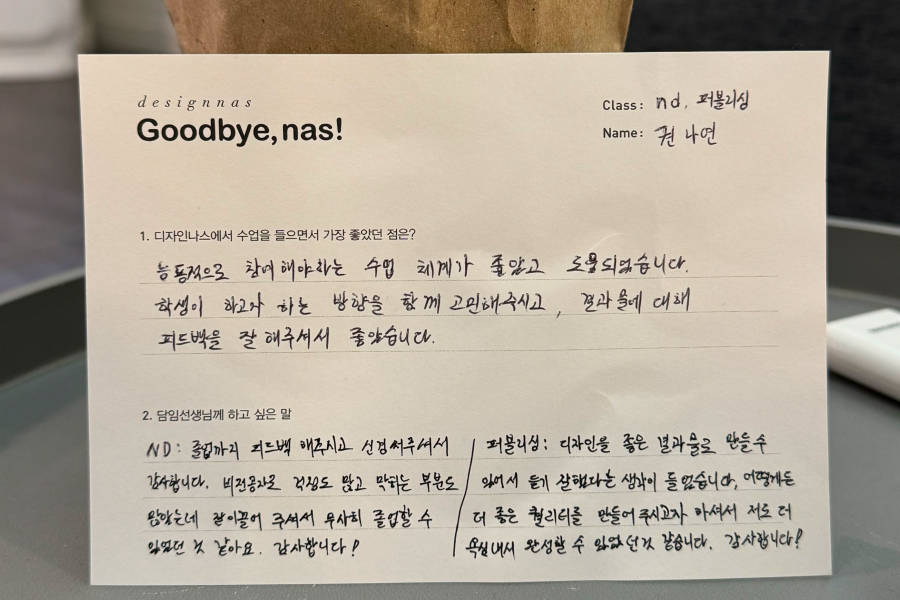 designnas
Goodbye, nas!
Class: nd, 퍼블리싱
Name: 권나연
1. 디자인나스에서 수업을 들으면서 가장 좋았던 점은?
능동적으로 참여해야하는 수업 체계가 좋았고 도움되었습니다.
학생이 하고자 하는 방향을 함께 고민해주시고, 결과물에 대해
피드백을 잘해주셔서 좋았습니다.
2. 담임선생님께 하고 싶은 말
ND: 졸업까지 피드백 해주시고 신경써주셔서
감사합니다. 비전공자로 걱정도 많고 막히는 부분도
많았는데 잘이끌어 주셔서 무사히 졸업할 수
있었던 것 같아요. 감사합니다!
퍼블리싱: 디자인을 좋은 결과물로 만들수
있어서 듣기 잘했다는 생각이 들었습니다, 어떻게든
더 좋은 퀄리티를 만들어주시고자 하셔서 저도 더
욕심내서 완성할 수 있었던것 같습니다. 감사합니다!